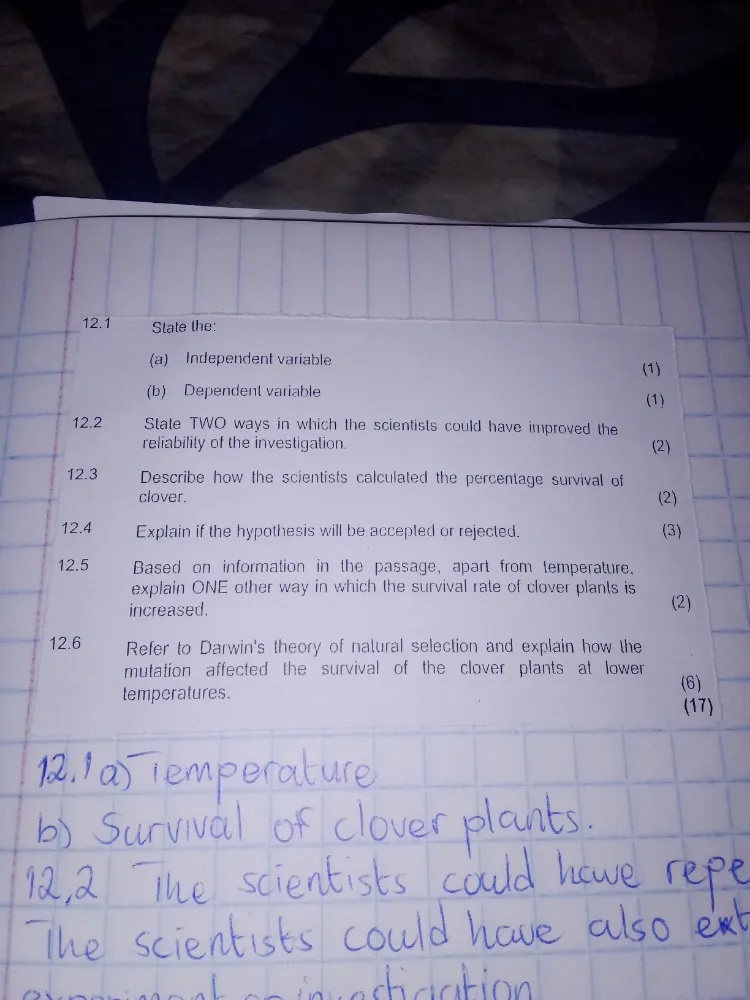 12.1 State the:
(a) Independent variable (1)
(b) Dependent variable (1)
12.2 State TWO ways in which the scientists could have improved the
reliability of the investigation. (2)
12.3 Describe how the scientists calculated the percentage survival of
clover. (2)
12.4 Explain if the hypothesis will be accepted or rejected. (3)
12.5 Based on information in the passage, apart from temperature,
explain ONE other way in which the survival rate of clover plants is
increased. (2)
12.6 Refer to Darwin's theory of natural selection and explain how the
mutation affected the survival of the clover plants at lower
temperatures. (6)
(17)
12.1 a) Temperature
b) Survival of clover plants.
12,2 The scientists could have repe
The scientists could have also ext